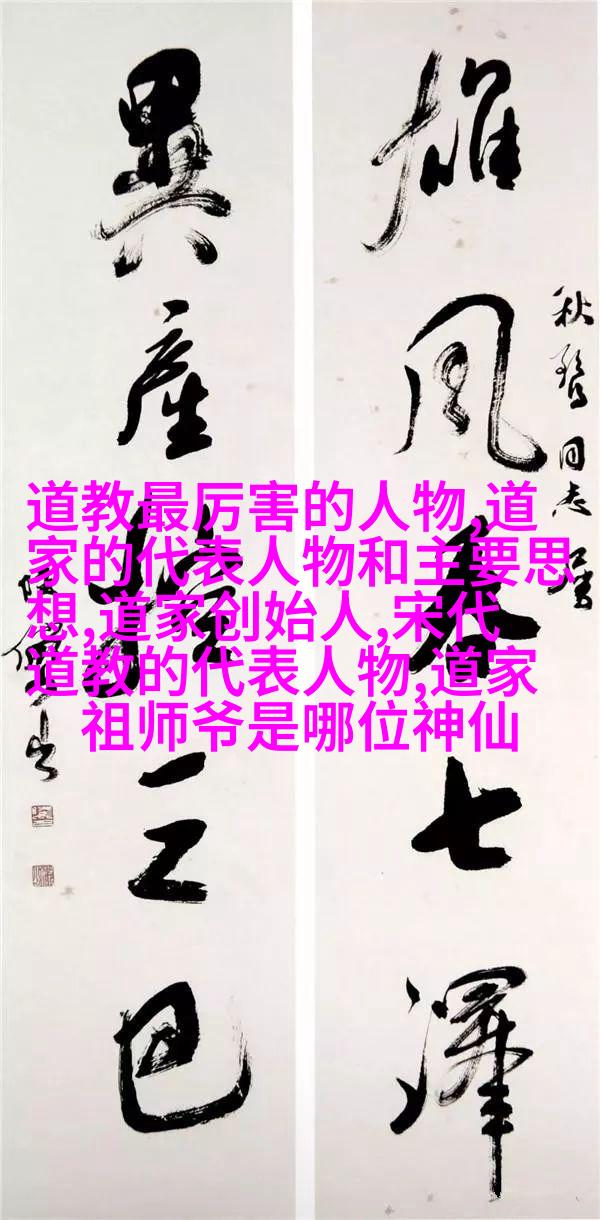 雄風吞七澤
同志屬
異產控三巴
道教最厉害的人物,道
家的代表人物和主要思
想,道家创始人,宋代
道教的代表人物,道家
祖师爷是哪位神仙